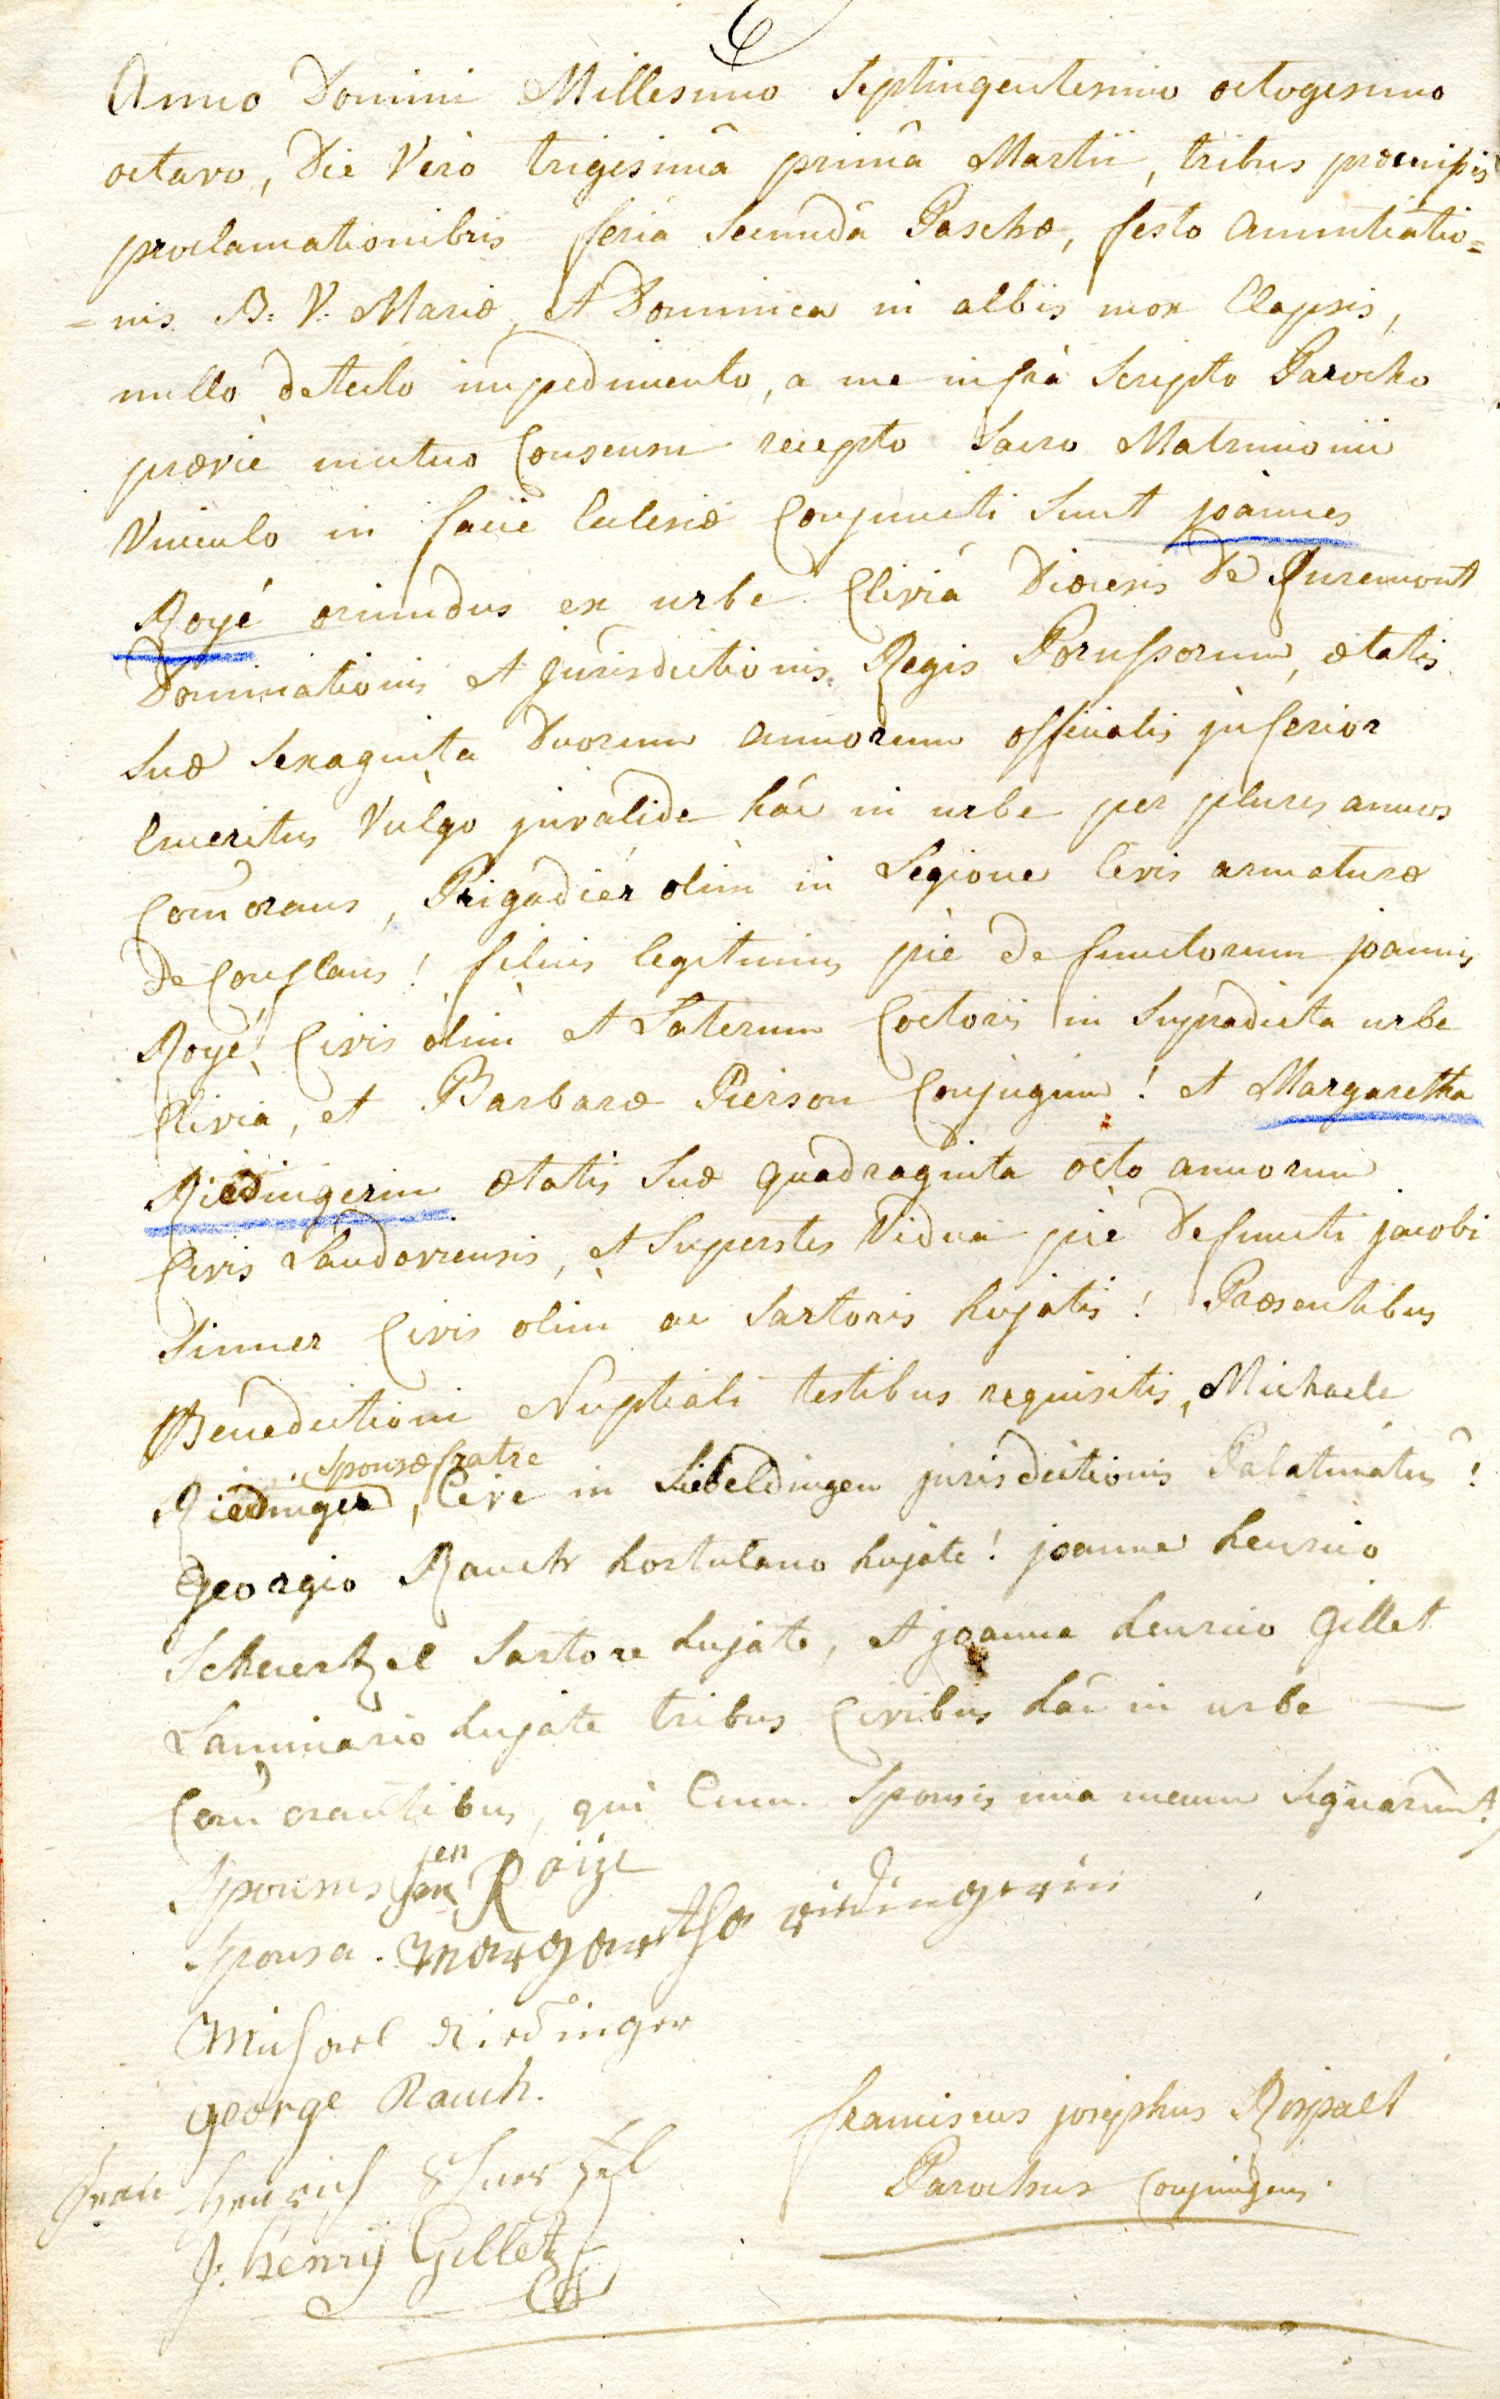 Anno Domini Millesimo Septingentesimo octogesimo
octavo, Die Verò trigesimâ primâ Martii, tribus præmissis
proclamationibus feriâ Secundâ Paschæ, festo Annuntiatio=
=nis B: V: Mariæ, et Dominica in albis mox Elapsis,
nullo detecto impedimento, a me infrà Scripto Parocho
prævie mutuo Consensu recepto Sacro Matrimonii
Vinculo in facie Ecclesiæ Conjuncti Sunt joannes
Royé oriundus ex urbe Cliviâ Diœcesis de Ruremont
Dominationis et Jurisdictionis Regis Porussorum, ætatis
Suæ Sexaginta Duorum annorum officialis inferior
Emeritus Vulgo invalide hâc in urbe per plures annos
Com̄orans, Brigadiér olim in Legione levis armaturæ
de Conflans! filius legitimus piè defunctorum joannis
Royé Civis olim et Laterum Coctoris in Supradicta urbe
Clivia, et Barbaræ Pierson Conjugum! et Margaretha
Riedingerin ætatis Suæ quadraginta octo annorum
Civis Landaviensis, et Superstes Vidua piè Defuncti jacobi
Sinner Civis olim ac Sartoris hujatis! Præsentibus
Benedictioni Nuptiali testibus requisitis, Michaele
Sponsæ fratre
Riedinger, Cive in Siebeldingen jurisdictionis Palatinatus!
Georgio Rauch hortulano hujate! joanne henrico
Schuertzel Sartore hujate, et joanne henrico Gillet
Laminario hujate tribus Civibus hâc in urbe
Com̄orantibus, qui Cum Sponsis una mecum Signarunt.
Sponsus Jen Röije
Sponsa. Margaretha riedingerin
Michael Riedinger
George Rauch.
henrich Schuertzel
J: henrÿ Gillet
franciscus josephus Rospatt
Parochus Conjungens.